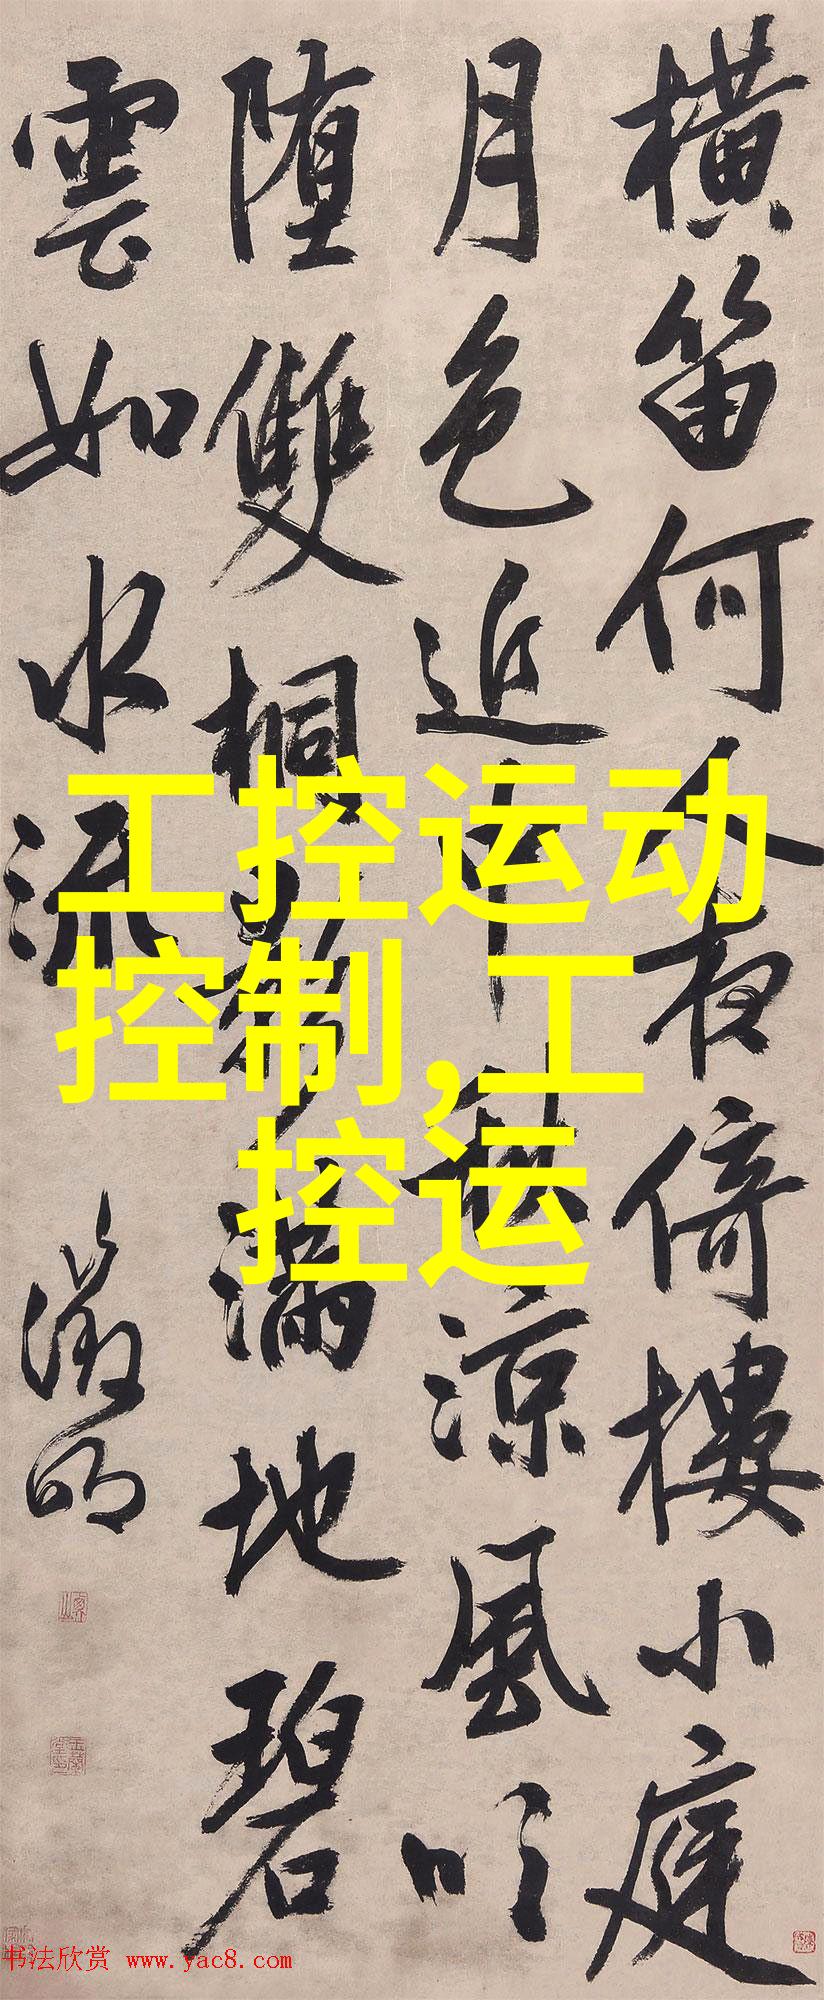 橫笛何人夜倚樓小庭
月色近中秋涼風吹
堕雙桐影滿地碧
雲如水流
徵明
工控运动
控制,工
控运
书法欣赏 www.yac8.com